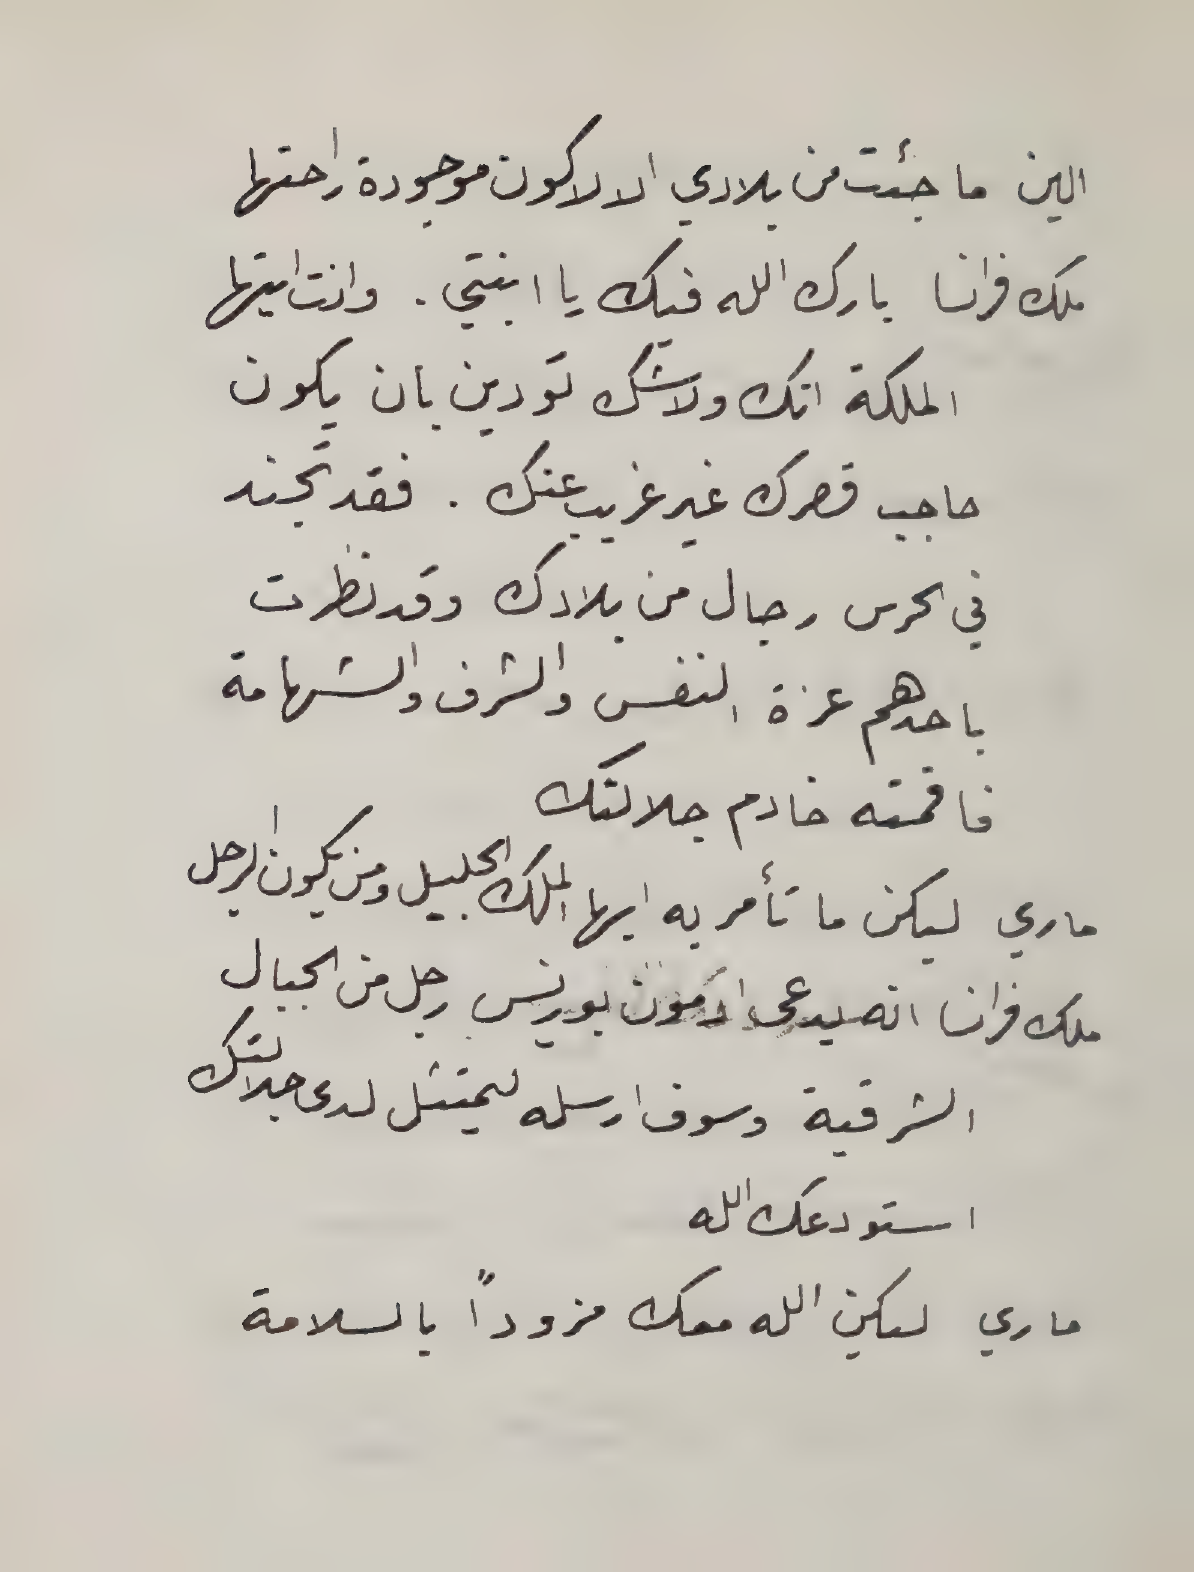 الين ما جئت من بلادي الا لاكون موجودة راحتها
ملك فرانسا بارك الله فيك يا ابنتي . وانت ايتها
الملكة انك ولاشك تودين بان يكون
حاجب قصرك غير غريب عنك . فقد تجند
في الحرس رجال من بلادك وقد نظرت
باحدهم عزة النفس والشرف والشهامة
فاقمته خادم جلالتك
ماري ليكن ما تأمر به ايها الملك الجليل ومن يكون الرجل
ملك فرانسا انه يدعى ادمون بورنس رجل من الجبال
الشرقية وسوف ارسله ليمتثل لدى جلالتك
استودعك الله
ماري ليكن الله معك مزوداً بالسلامة